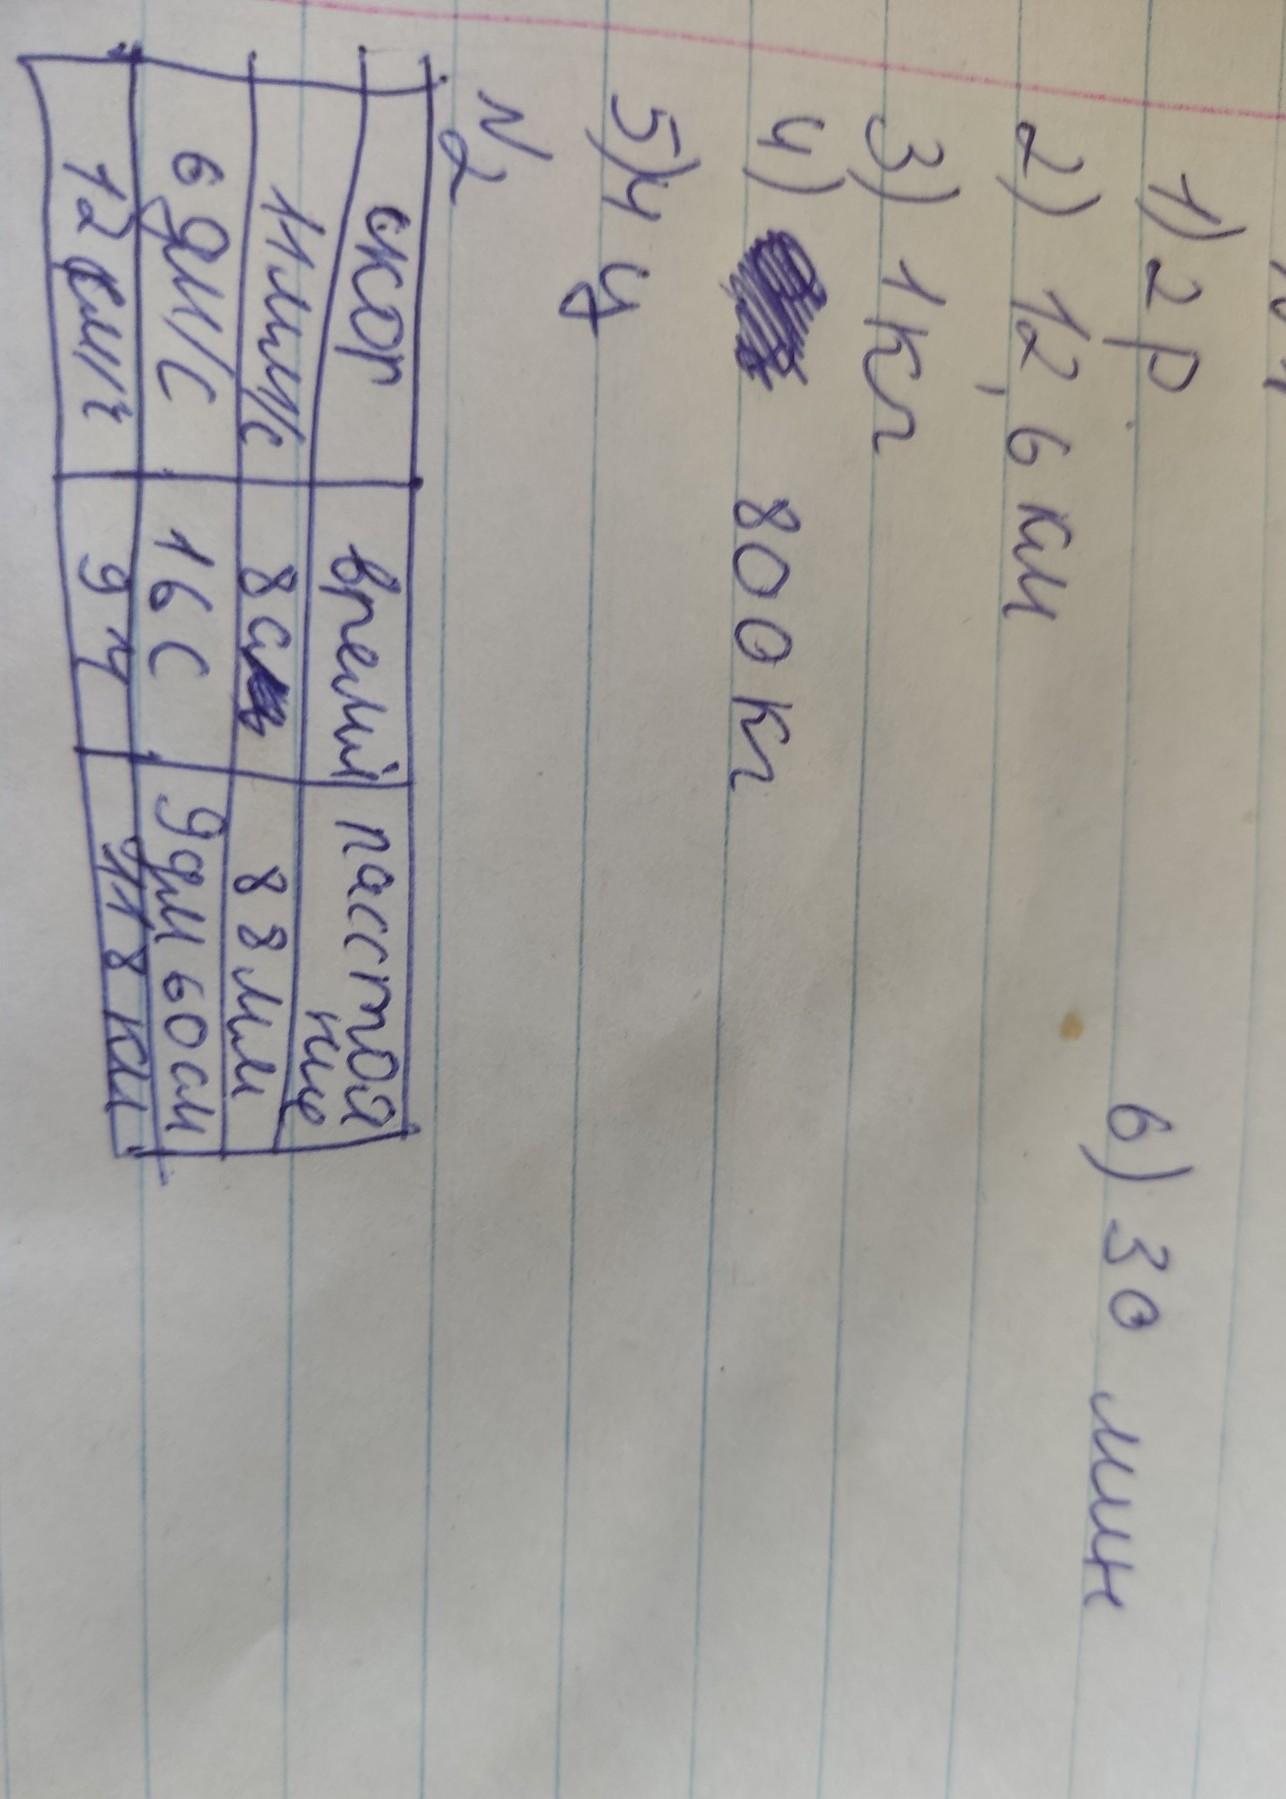 N1
1) 2 р
2) 12,6 км
3) 1 кг
4) 800 кг
5) 4 ч
6) 30 мин
N2
скор время расстояние
11 мм/с 8 с 88 мм
6 дм/с 16 с 9 дм 60 см
12 км/ч 9 ч 118 км